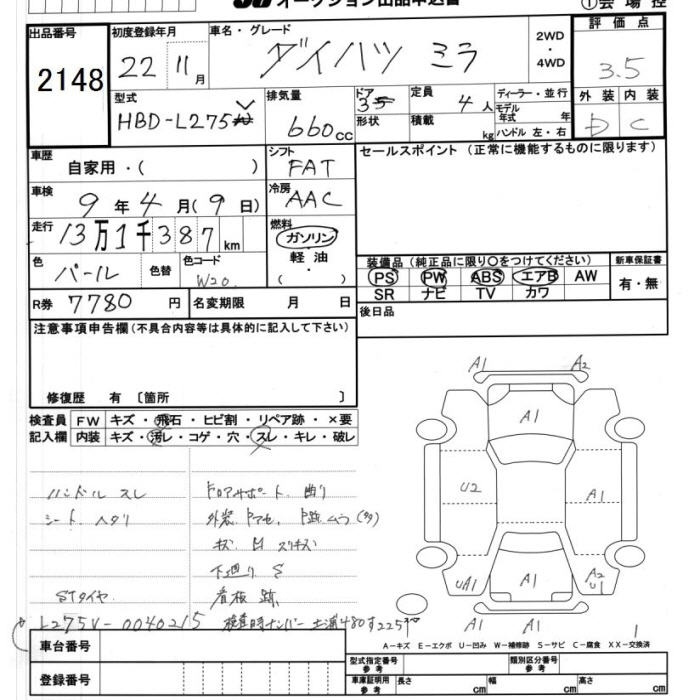 オークション出品申込書
①会場控
出品番号 2148
初度登録年月 22 11月
車名・グレード ダイハツ ミラ
2WD・4WD
評価点 3.5
型式 HBD-L275V
排気量 660cc
ドア 35
形状
定員 4人
積載 kg
ディーラー・並行
モデル年式 年
ハンドル 左・右
外装 D 内装 C
車歴 自家用・( )
シフト FAT
セールスポイント (正常に機能するものに限ります)
車検 9年4月(9日)
冷房 AAC
走行 13万1千387km
燃料 ガソリン 軽油 ( ・ )
色 パール 色替 色コード W20
装備品 (純正品に限り○をつけてください) 新車保証書
PS PW ABS エアB AW 有・無
SR ナビ TV カワ
R券 7780円 名変期限 月 日
後日品
注意事項申告欄(不具合内容等は具体的に記入して下さい)
修復歴 有 〔箇所 〕
検査員 FW キズ・飛石・ヒビ割・リペア跡・×要
記入欄 内装 キズ・汚レ・コゲ・穴・スレ・キレ・破レ
A1 A2
A1
U2 A1
UA1 A1 A2 U1
A1 A1 1
ハンドル スレ ドロアサポート 曲り
シート ヘタリ 外装 ドアセ、
キズ 凹 スリキズ
下廻り S
STタイヤ 看板 跡
L275V-0040215 検査時ナンバー 土浦480す225
A-キズ E-エクボ U-凹み W-補修跡 S-サビ C-腐食 XX-交換済
車台番号
型式指定番号 参考 類別区分番号 参考
登録番号
車庫証明用 参考 長さ cm 幅 cm 高さ cm